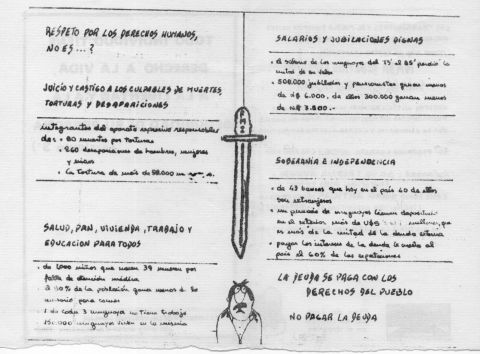 RESPETO POR LOS DERECHOS HUMANOS,
NO ES...?
JUICIO Y CASTIGO A LOS CULPABLES DE MUERTES,
TORTURAS Y DESAPARICIONES
integrantes del aparato represivo responsables
de: • 80 muertos por torturas
• 260 desapariciones de hombres, mujeres
y niños
• la tortura de más de 50.000
SALUD, PAN, VIVIENDA, TRABAJO Y
EDUCACION PARA TODOS
• de 1.000 niños que nacen 39 mueren por
falta de atención médica
• el 80% de la población gana menos de lo
necesario para comer
• 1 de cada 3 uruguayos no tiene trabajo
150.000 uruguayos viven en la miseria
PAZ
SALARIOS Y JUBILACIONES DIGNAS
• el salario de los uruguayos del 73' al 85' perdió la
mitad de su valor
• 508.000 jubilados y pensionistas ganan menos
de N$ 6.000, de ellos 300.000 ganan menos
de N$ 3.500.-
SOBERANÍA E INDEPENDENCIA
• de 43 bancos que hay en el país 40 de ellos
son extranjeros
• un puñado de uruguayos tienen depositado
en el exterior más de U$S millones, que
es más de la mitad de la deuda externa
• pagar los intereses de la deuda le cuesta al
país el 60% de las exportaciones
LA DEUDA SE PAGA CON LOS
DERECHOS DEL PUEBLO
NO PAGAR LA DEUDA